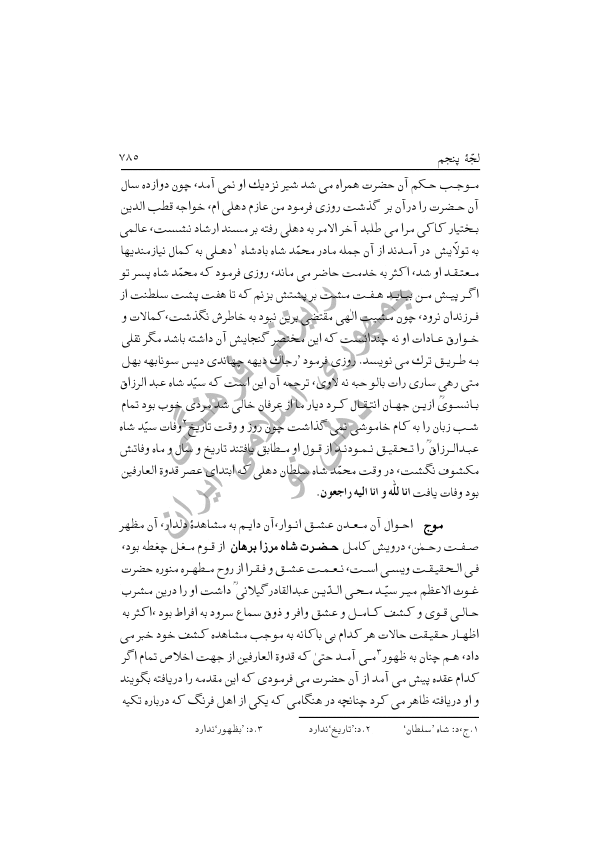 لجّۀ پنجم ۷۸۵
مـوجـب حـکم آن حضرت همراه می شد شیر نزدیك او نمی آمد، چون دوازده سال
آن حـضرت را درآن بر گذشت روزی فرمود من عازم دهلی ام، خواجه قطب الدین
بـختیار کاکی مرا می طلبد آخر الامر به دهلی رفته بر مسند ارشاد نشست، عالمی
به تولّایش در آمـدند از آن جمله مادر محمّد شاه بادشاه ۱دهـلی به کمال نیازمندیها
مـعتـقـد او شد، اکثر به خدمت حاضر می ماند، روزی فرمود که محمّد شاه پسر تو
اگـر پیـش مـن بیـایـد هـفـت مشت بر پشتش بزنم که تا هفت پشت سلطنت از
فـرزندان نرود، چون مشیت الٰهی مقتضی برین نبود به خاطرش نگذشت، کمالات و
خـوارق عـادات او نه چندانست که این مختصر گنجایش آن داشته باشد مگر نقلی
بـه طـریـق ترك می نویسد. روزی فرمود ’رجاك دیهه چهاندی دیس سونابهه بهل
متی رهی ساری رات بالو حبه نه لاوی‘، ترجمه آن این است که سیّد شاه عبد الرزاق
بـانسـویؒ ازیـن جهـان انتقـال کـرد دیار ما از عرفان خالی شد مردی خوب بود تمام
شـب زبان را به کام خاموشی نمی گذاشت چون روز و وقت تاریخ۲وفات سیّد شاه
عبـدالـرزاقؒ را تـحـقیـق نـمـودنـد از قـول او مـطابق یافتند تاریخ و سال و ماه وفاتش
مکشوف نگشت، در وقت محمّد شاه سلطان دهلی که ابتدای عصر قدوة العارفین
بود وفات یافت انا لله و انا الیه راجعون.
موج احـوال آن مـعـدن عشـق انـوار، آن دایـم به مـشاهدۀ دلدار، آن مظهر
صـفـت رحـمٰن، درویش کامـل حـضـرت شاه مرزا برهان از قـوم مـغل چغطه بود،
فـی الـحقیـقت ویسـی اسـت، نـعـمـت عشـق و فـقـرا از روح مـطهـره منوره حضرت
غـوث الاعظم میـر سیّـد مـحـی الـدّیـن عبدالقادر گیلانیؒ داشت او را درین مشرب
حـالـی قـوی و کشـف کـامـل و عشق وافر و ذوق سماع سرود به افراط بود، اکثر به
اظهـار حـقیقـت حالات هر کدام بی باکانه به موجب مشاهده کشف خود خبر می
داد، هـم چنان به ظهور۳مـی آمـد حتیٰ که قدوة العارفین از جهت اخلاص تمام اگر
کدام عقده پیش می آمد از آن حضرت می فرمودی که این مقدمه را دریافته بگویند
و او دریافته ظاهر می کرد چنانچه در هنگامی که یکی از اهل فرنگ که درباره تکیه
۱.ج،د: شاه ’سلطان‘ ۲.د: ’تاریخ‘ندارد ۳.د: ’بظهور‘ندارد
رایزنی فرهنگی
جمهوری اسلامی ایران
دهلی نو